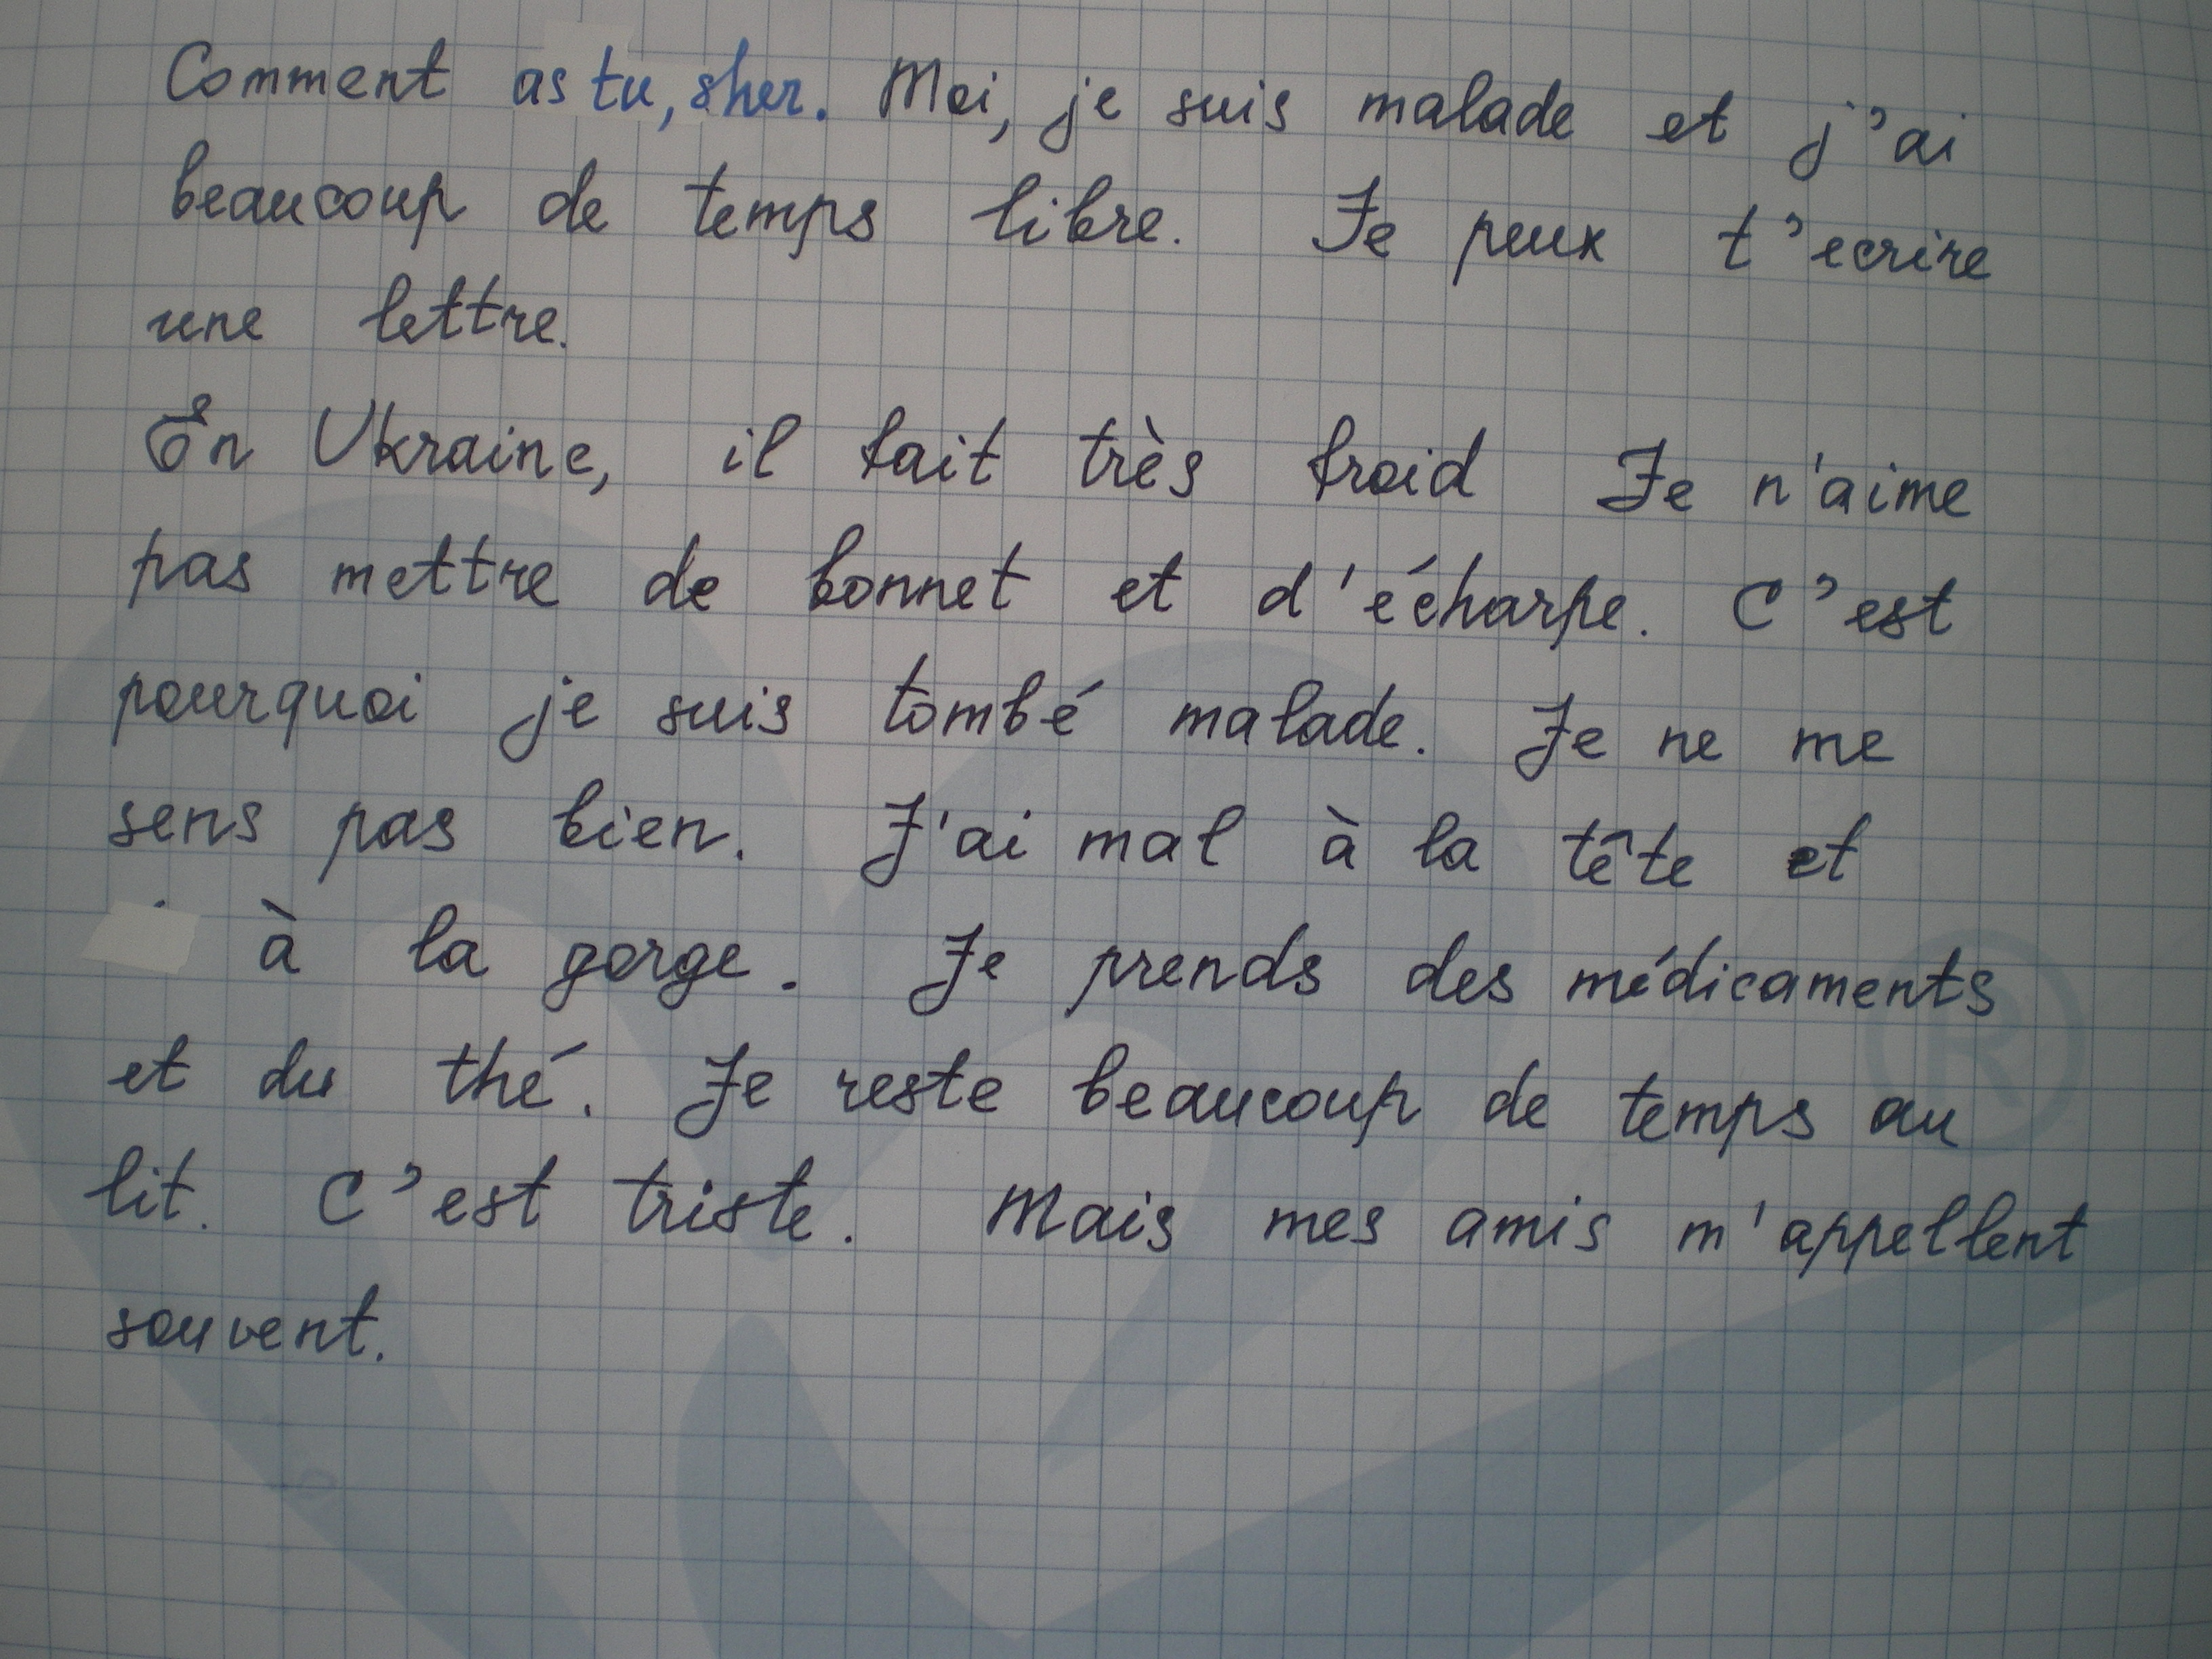 Comment as tu, sher. Moi, je suis malade et j'ai
beaucoup de temps libre. Je peux t'ecrire
une lettre.
En Ukraine, il fait très froid Je n'aime
pas mettre de bonnet et d'écharpe. C'est
pourquoi je suis tombé malade. Je ne me
sens pas bien. J'ai mal à la tête et
à la gorge. Je prends des médicaments
et du thé. Je reste beaucoup de temps au
lit. C'est triste. Mais mes amis m'appellent
souvent.